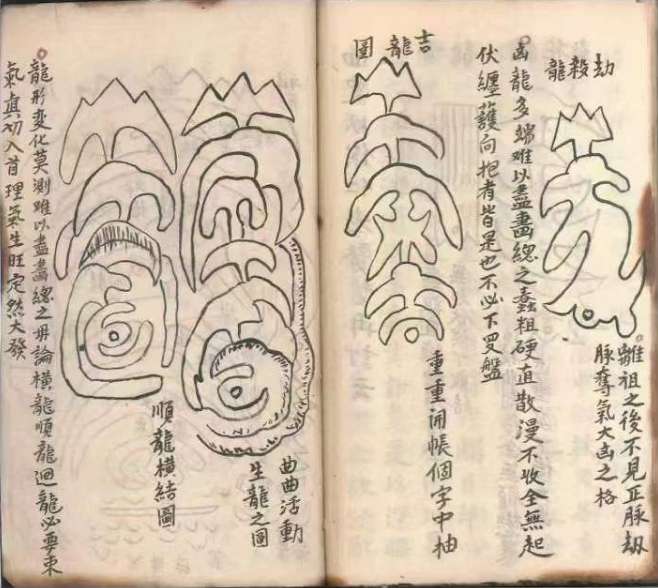 劫殺龍
離祖之後不見正脉劫
脉奪氣大凶之格
凶龍多端难以盡畫總之蠢粗硬直散漫不收全無起
伏纏護向抱者皆是也不必下羅盤
吉龍圖
重重開帳個字中抽
曲曲活動
生龍之圖
順龍橫結圖
龍形变化莫測难以盡畫總之毋論橫龍順龍迴龍必要束
氣真切入首理氣生旺定然大發